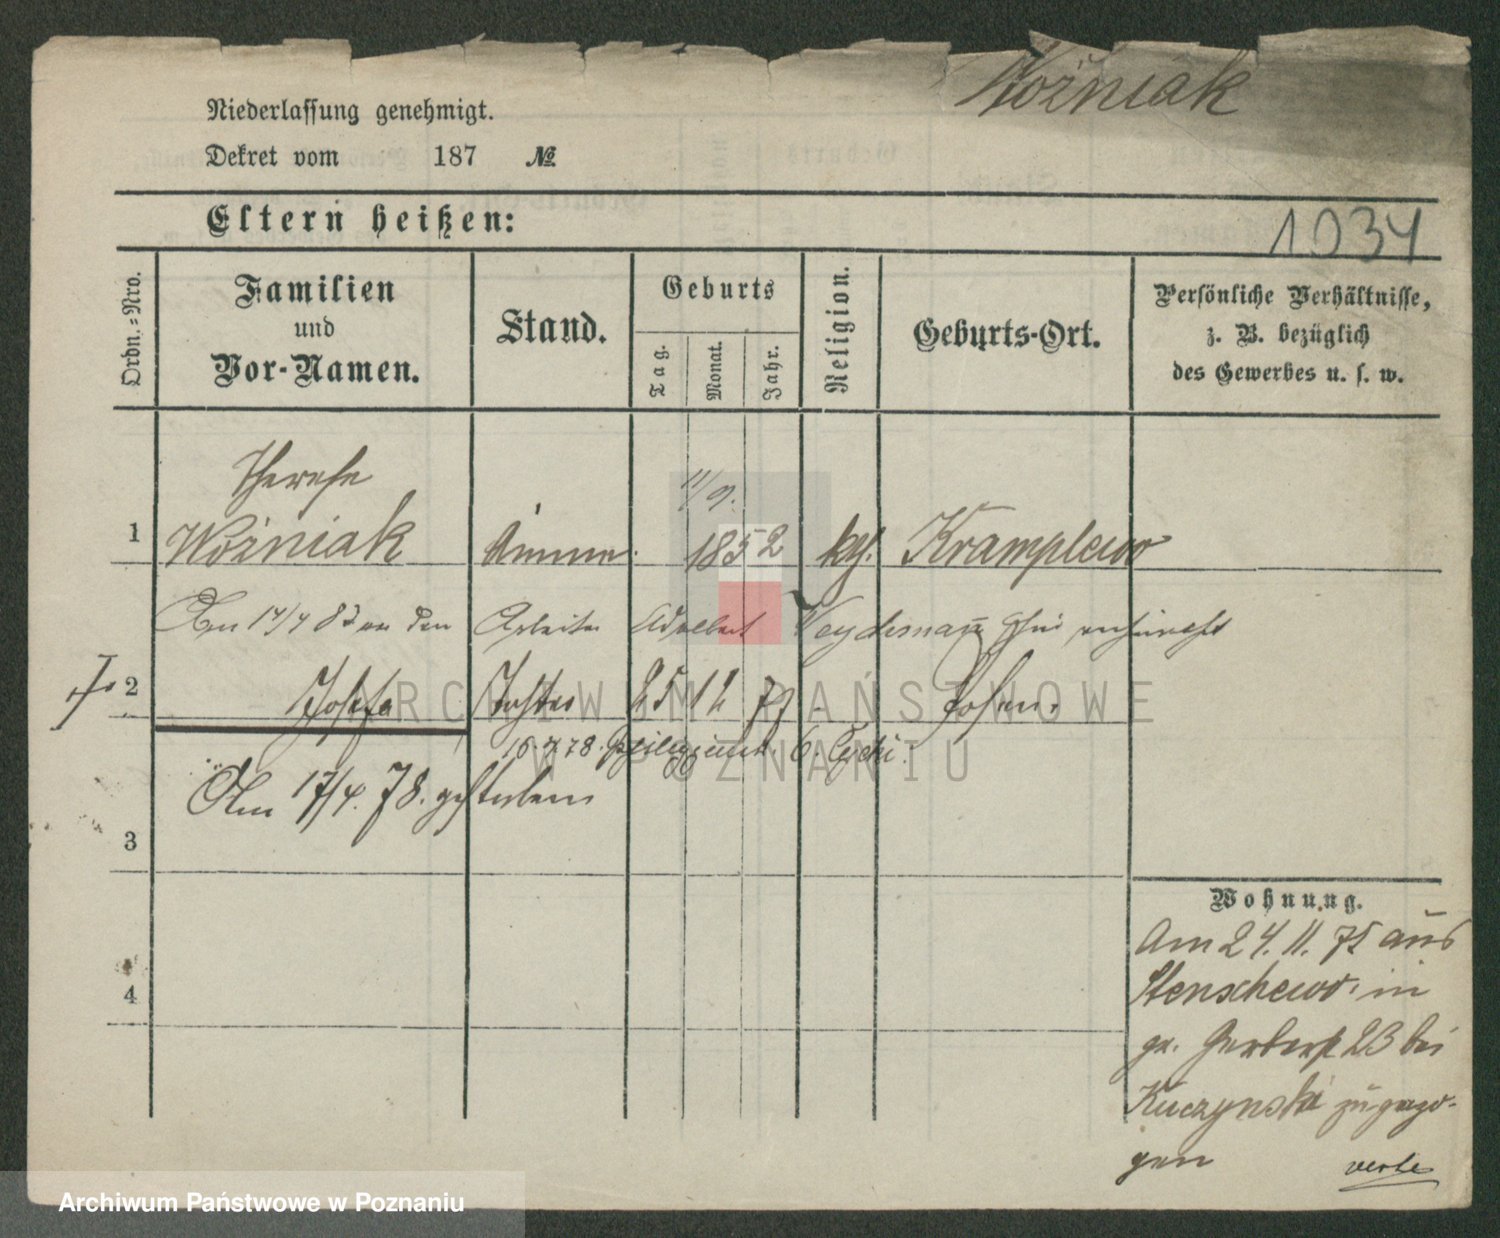 Woźniak
Niederlassung genehmigt.
Dekret vom 187 №
Eltern heißen:
1034
Ordn.-Nro.
Familien
und
Vor-Namen.
Stand.
Geburts
Tag.
Monat.
Jahr.
Religion.
Geburts-Ort.
Persönliche Verhältnisse,
z. B. bezüglich
des Gewerbes u. s. w.
Therese
11/9.
1 Woźniak Amme. 1852 kth. Kramplewo
Am 17/4 82 an den Arbeiter Adalbert
2 Josefa Tochter 25 12 77 Posen.
16.4.78.
Am 17/4. 78. gestorben
3
4
Wohnung.
Am 24. 11. 75 aus
Stenschewo in
gr. Gerberst 23 bei
Kuczynski zugezo-
gen
verte
ARCHIWUM PAŃSTWOWE
W POZNANIU
Archiwum Państwowe w Poznaniu